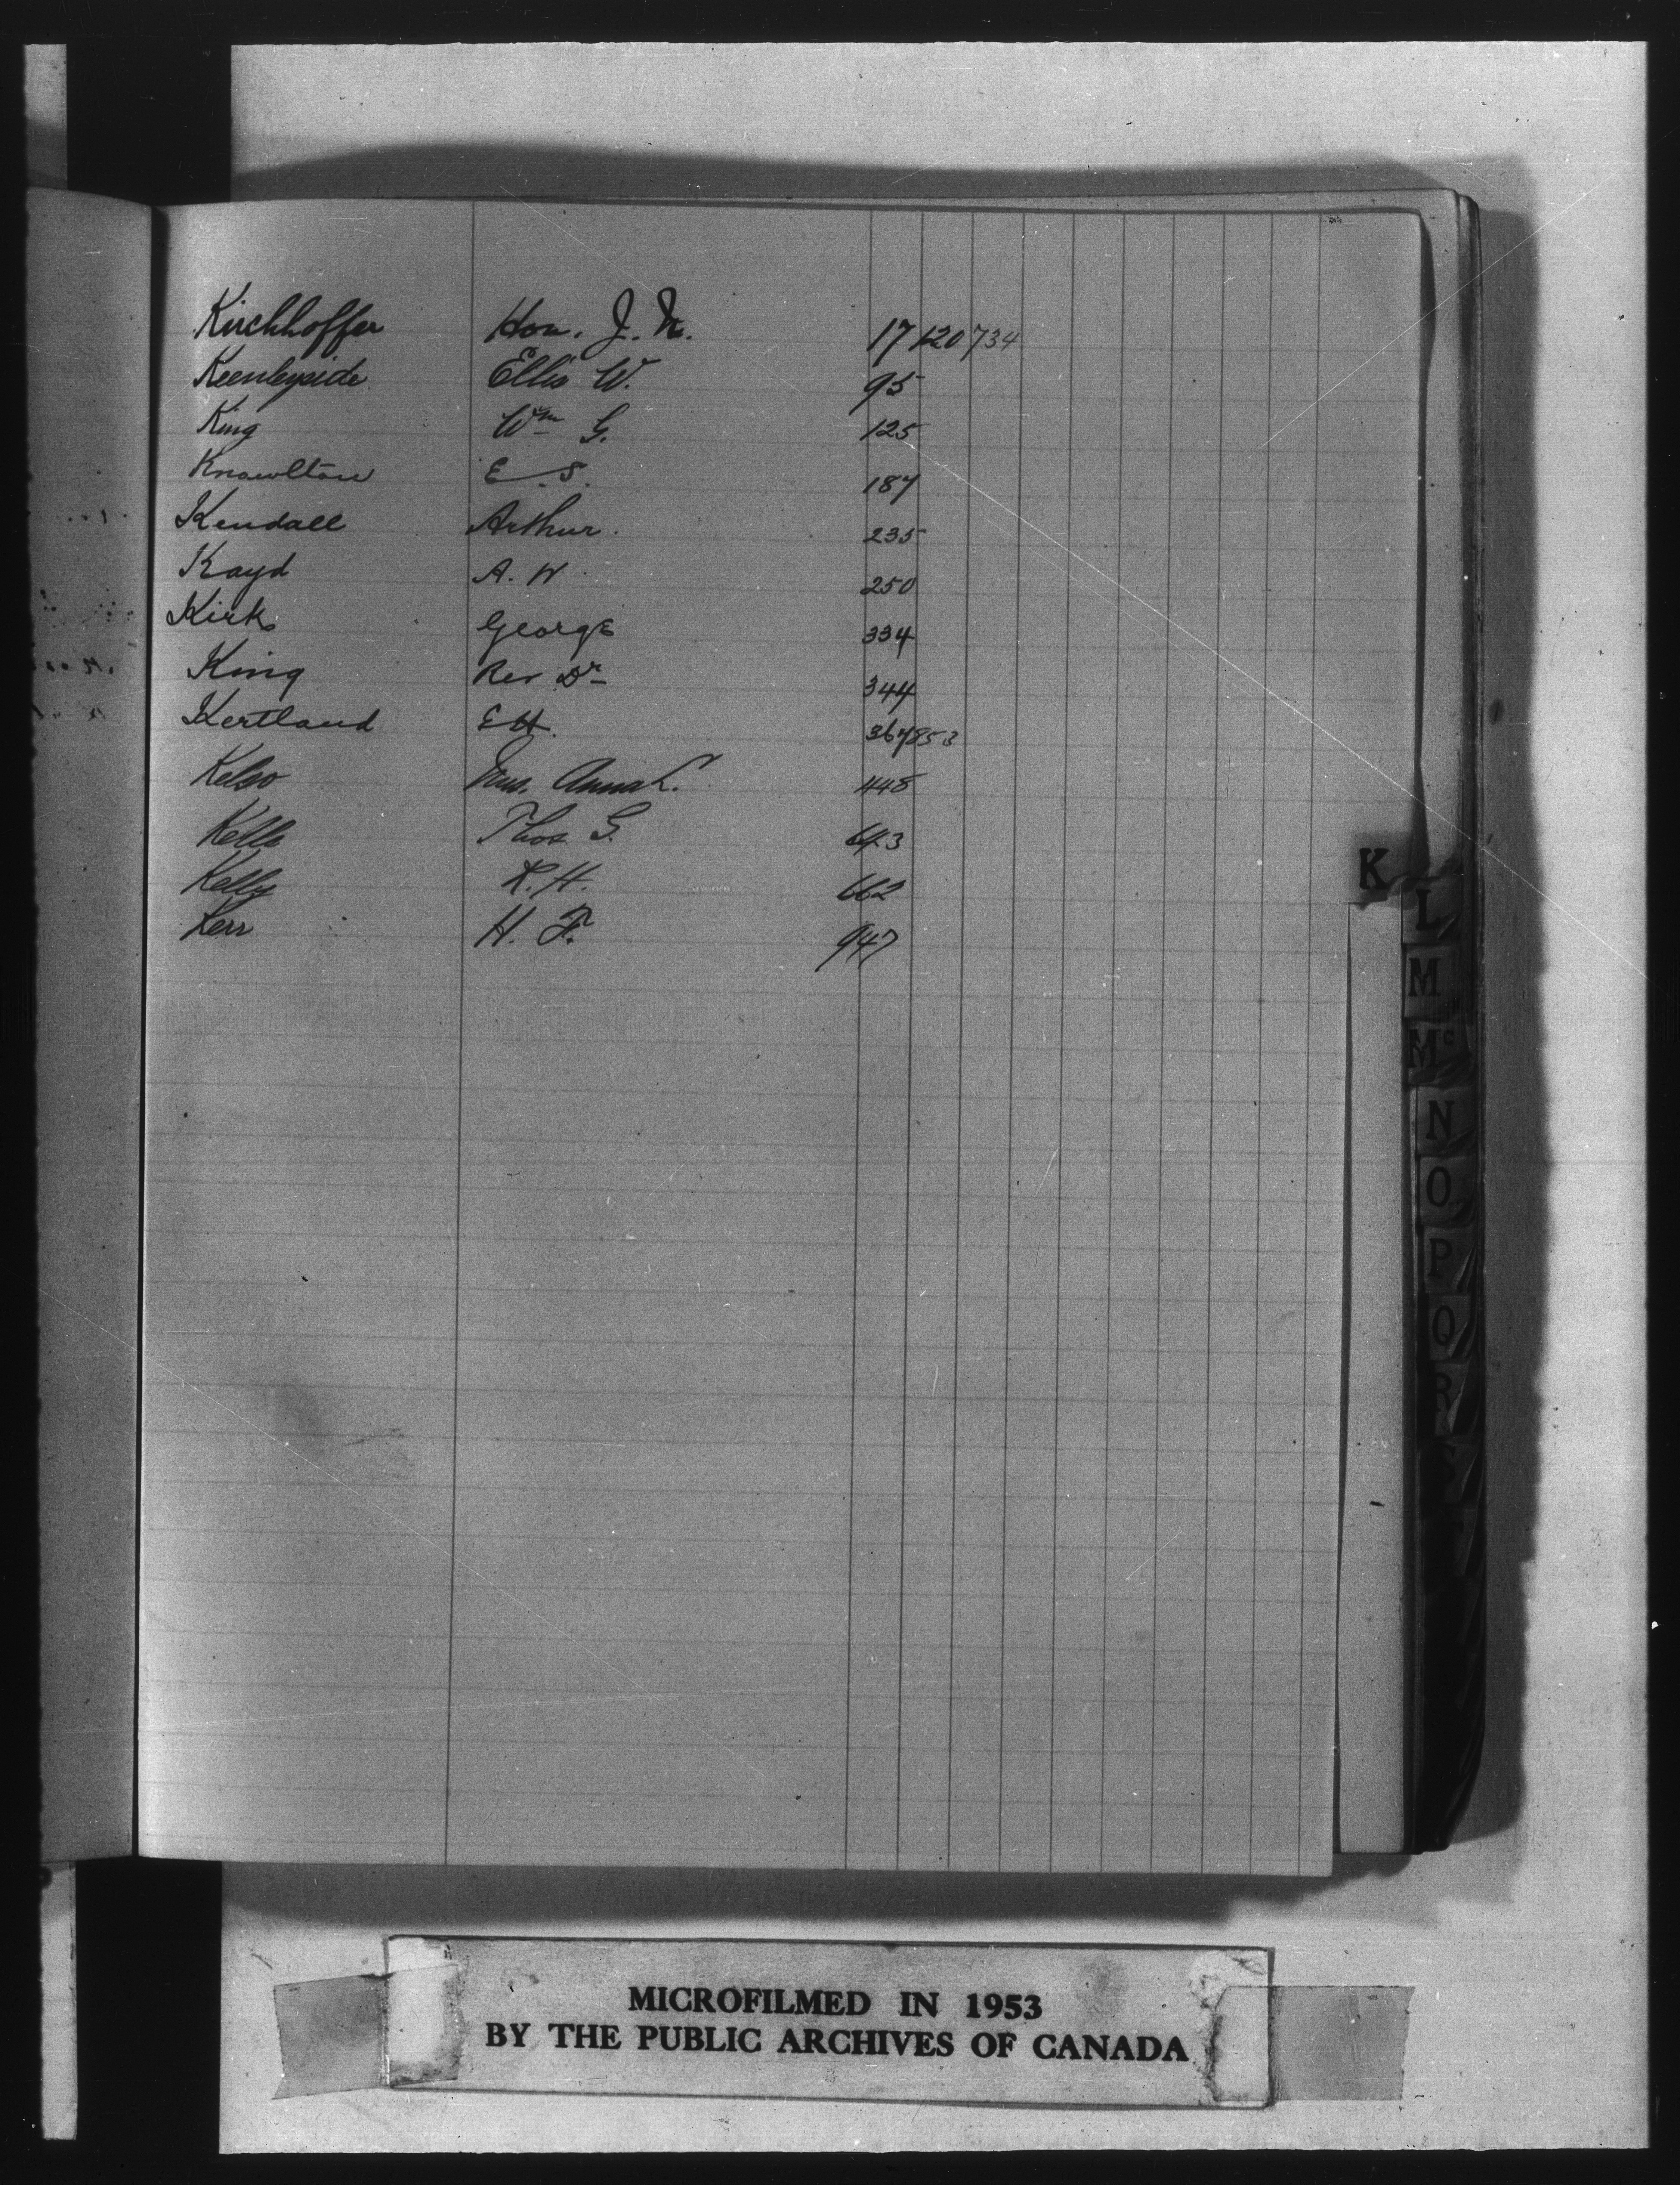 Kirchhoffer Hon. J. N. 17 120 734
Keenleyside Ellis W. 95
King Wm G. 125
Knowlton E. S. 187
Kendall Arthur. 235
Kayd A. W. 250
Kirk George 334
King Rev Dr 344
Kertland E H. 367 853
Kelso Mrs. Anna L. 448
Kells Thos G. 643
Kelly R. H. 662
Kerr H. F. 947
K
L
M
Mc
N
O
P
Q
R
MICROFILMED IN 1953
BY THE PUBLIC ARCHIVES OF CANADA